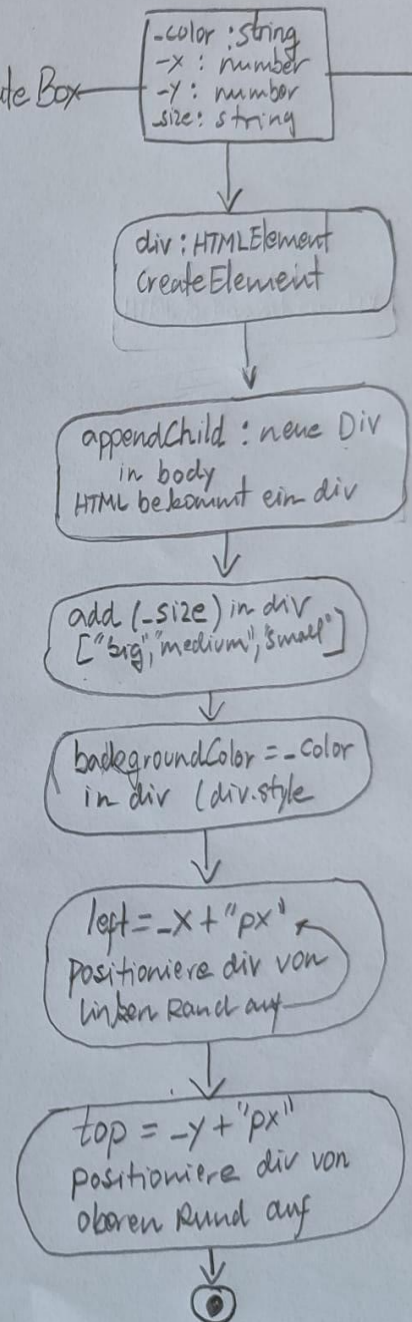 _color : string
ateBox
-x : number
-y : number
_size : string
div : HTMLElement
createElement
appendChild : neue Div
in body
HTML bekommt ein div
add (_size) in div
["big", "medium", "small"]
backgroundColor = _color
in div (div.style
left = _x + "px"
positioniere div von
linken Rand auf
top = _y + "px"
positioniere div von
oberen Rand auf